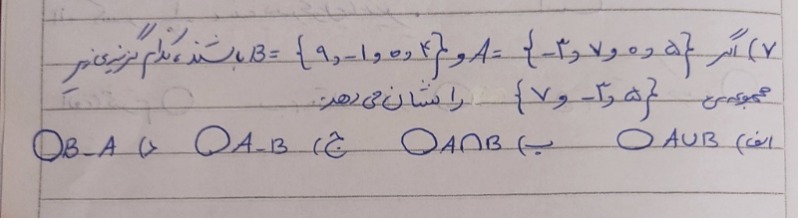 ۷) اگر A = {-۳ و ۷ و ۰ و ۵} و B = {۹ و -۱ و ۰ و ۴} باشند، کدام گزینه‌ی زیر
مجموعه‌ی {۷ و -۳ و ۵} را نشان می‌دهد:
الف) A∪B ○ ب) A∩B ○ ج) A-B ○ د) B-A ○